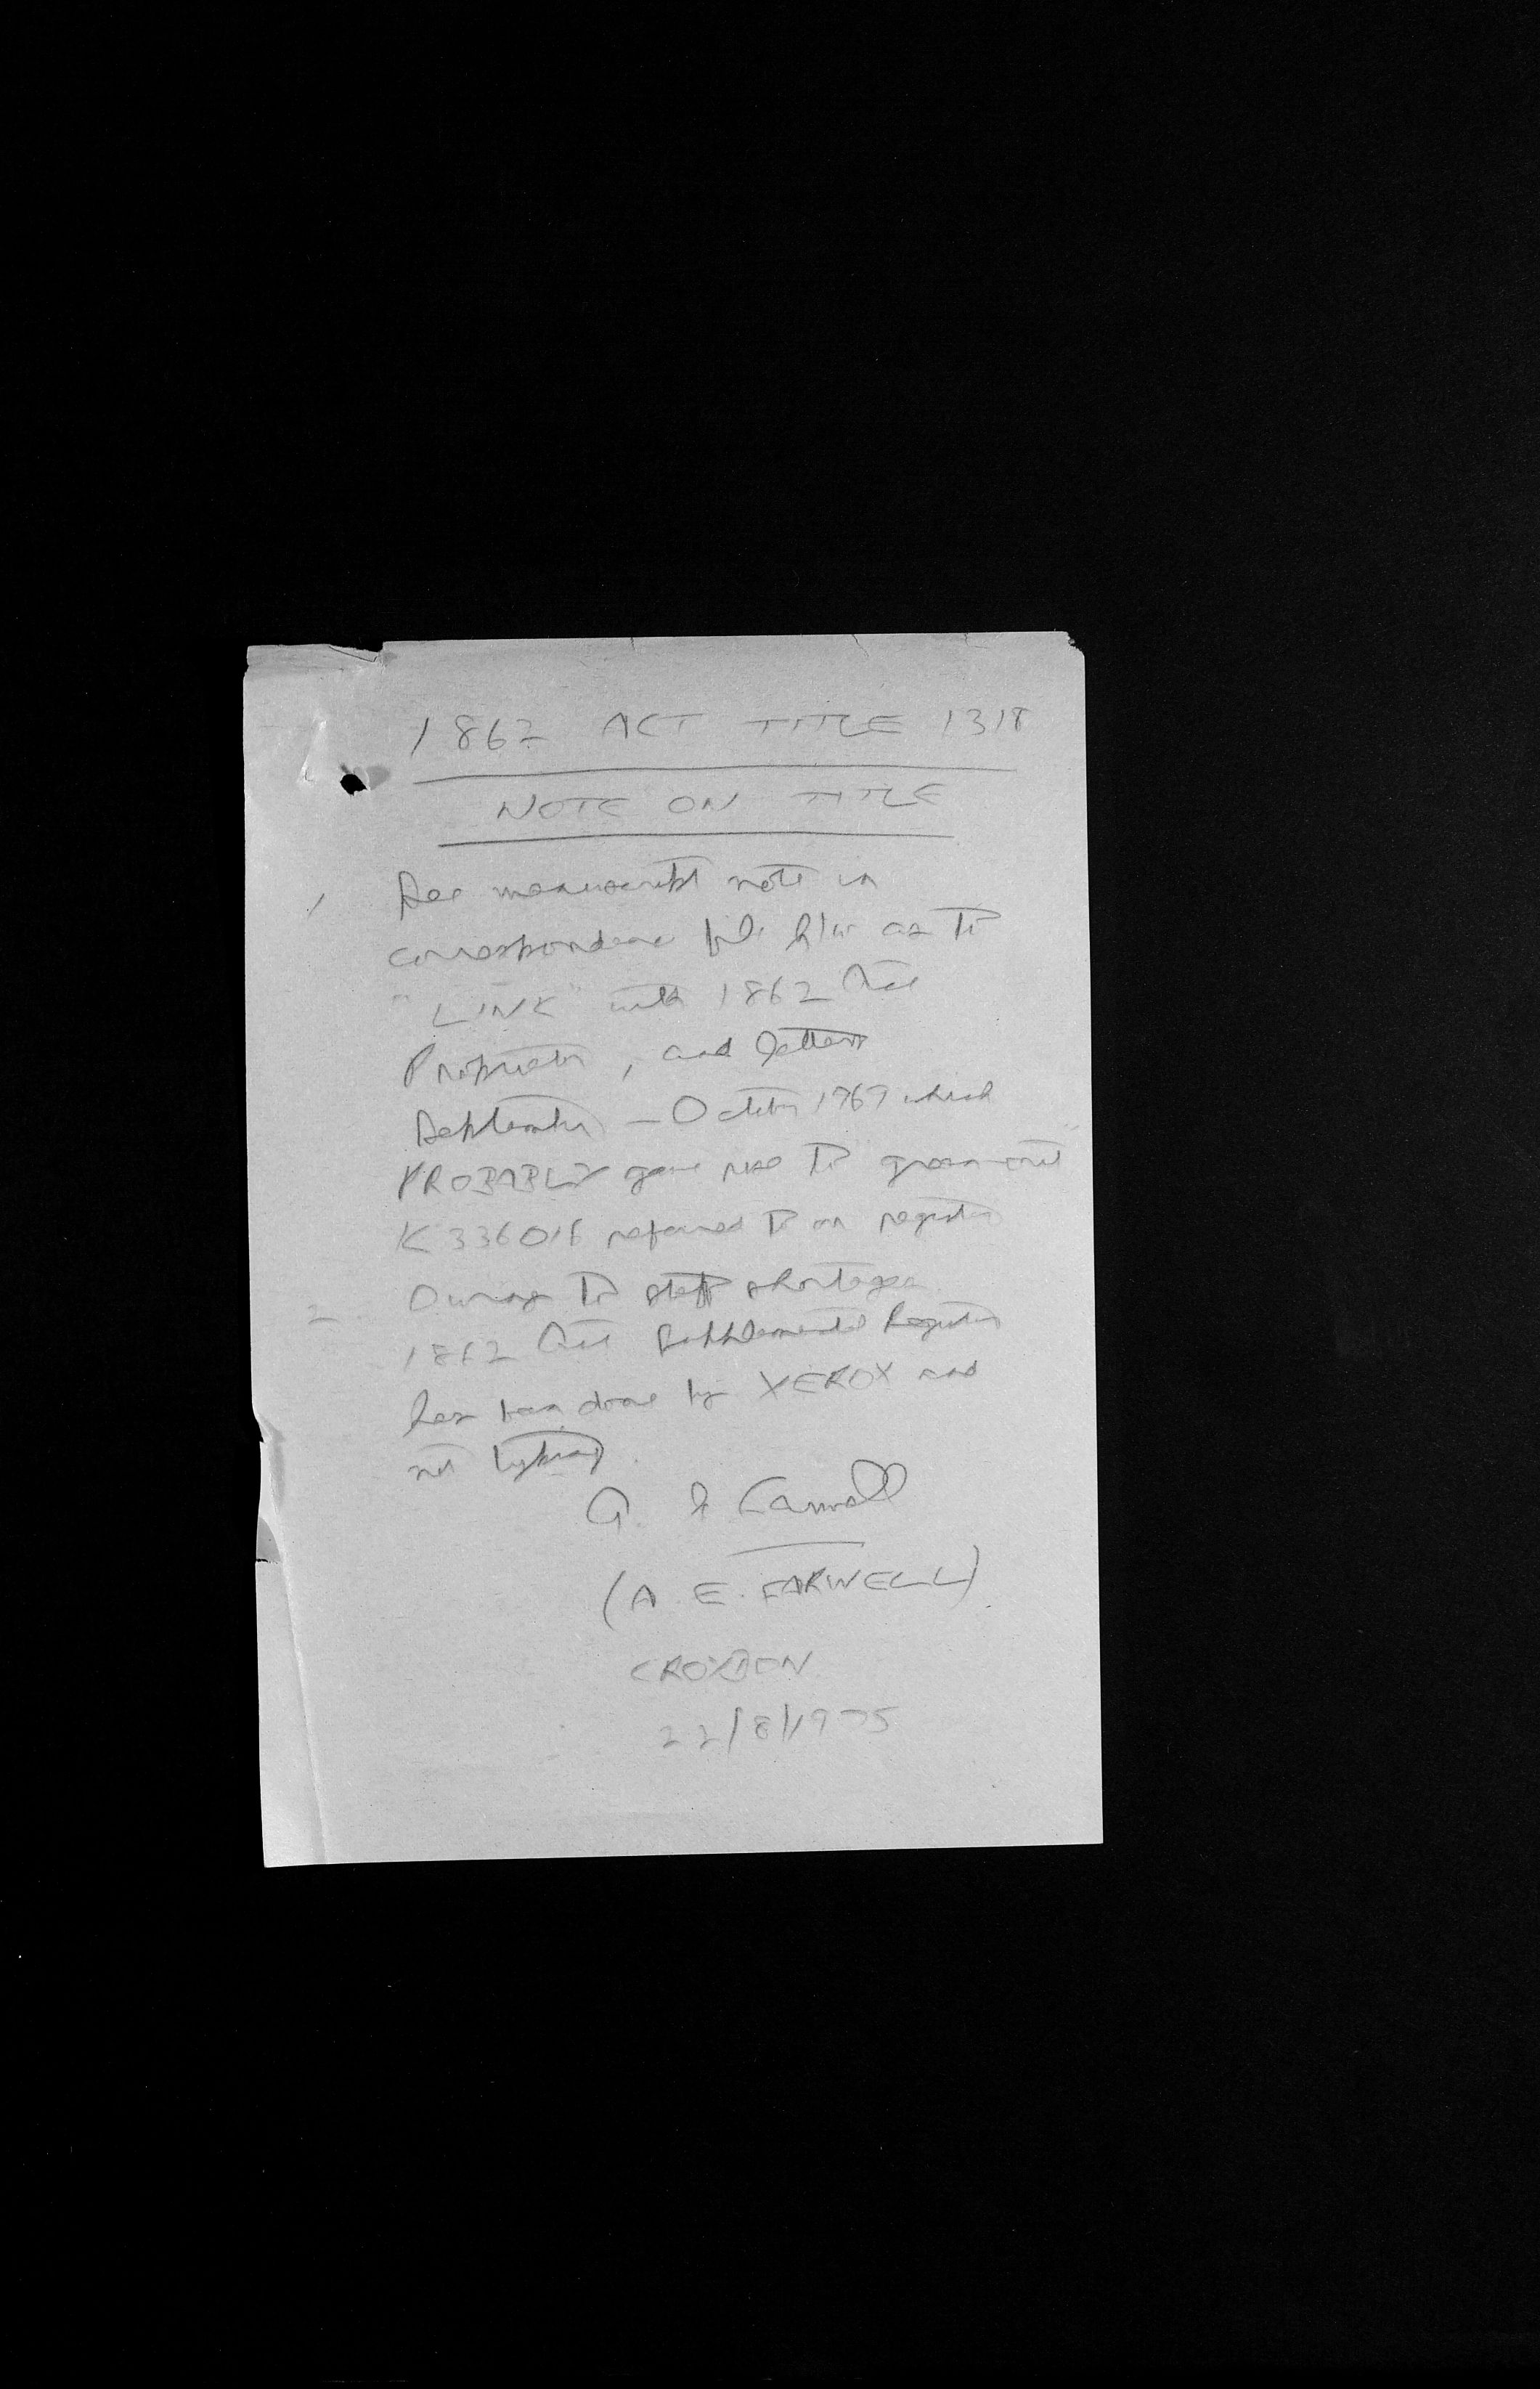 1862 ACT TITLE 1318
NOTE ON TITLE
1 See manuscript note in
correspondence file h/w as to
"LINK" with 1862 Act
Proprietor, and letters
September - October 1969 which
PROBABLY gave rise to
K336016 referred to on register
2. Owing to staff shortages
1862 Act Supplemental Register
has been done by XEROX and
not typing.
A. E. Farwell
(A. E. FARWELL)
CROYDON
22/8/1975